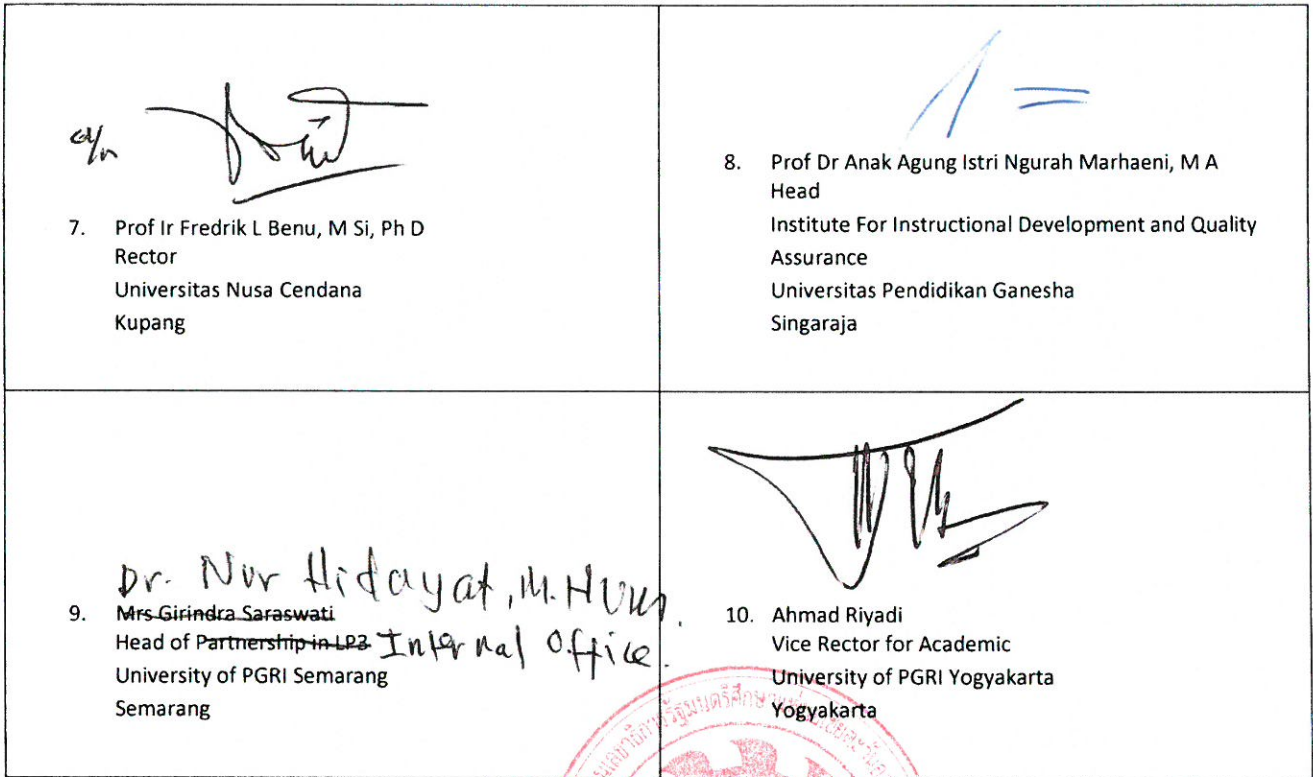 a/n
7. Prof Ir Fredrik L Benu, M Si, Ph D
Rector
Universitas Nusa Cendana
Kupang
8. Prof Dr Anak Agung Istri Ngurah Marhaeni, M A
Head
Institute For Instructional Development and Quality
Assurance
Universitas Pendidikan Ganesha
Singaraja
Dr. Nur Hidayat, M.Hum.
9. Mrs Girindra Saraswati
Head of Partnership in LP3 Internal Office.
University of PGRI Semarang
Semarang
10. Ahmad Riyadi
Vice Rector for Academic
University of PGRI Yogyakarta
Yogyakarta